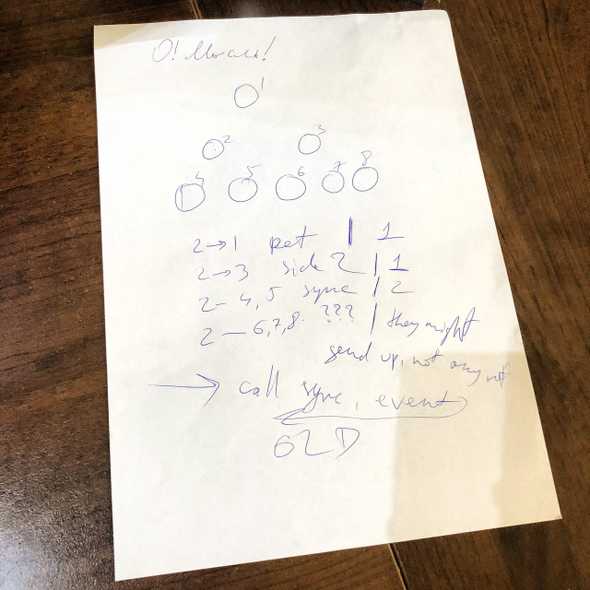 O!
1
2 3
4 5 6 7 8
2→1 ret | 1
2→3 side 2 | 1
2-4,5 sync | 2
2—6,7,8. ??? | they might
send up, not
→ call sync, event